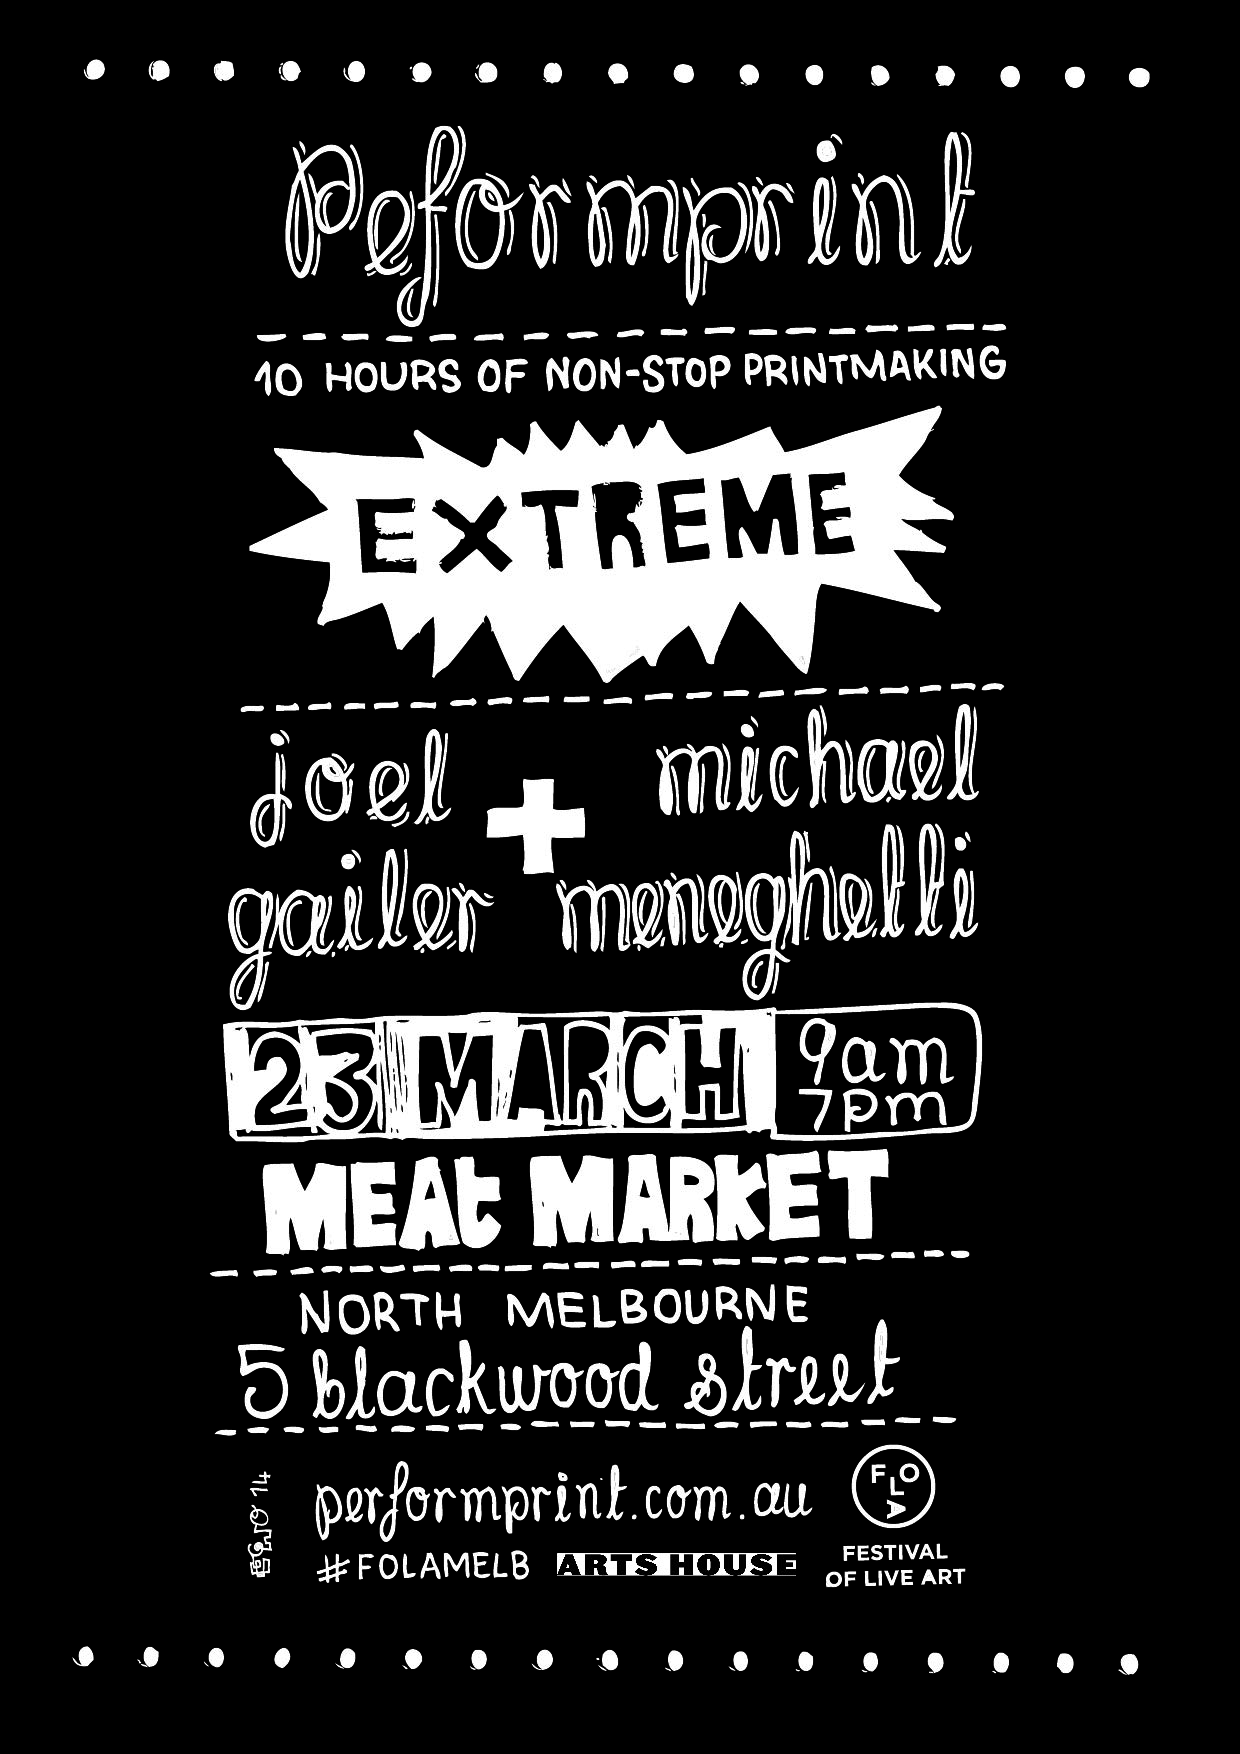 Peformprint
10 HOURS OF NON-STOP PRINTMAKING
EXTREME
joel + michael
gailer meneghetti
23 MARCH 9am
7pm
MEAt MARKET
NORTH MELBOURNE
5 blackwood street
performprint.com.au
#FOLAMELB ARTS HOUSE
FLOA
FESTIVAL
OF LIVE ART